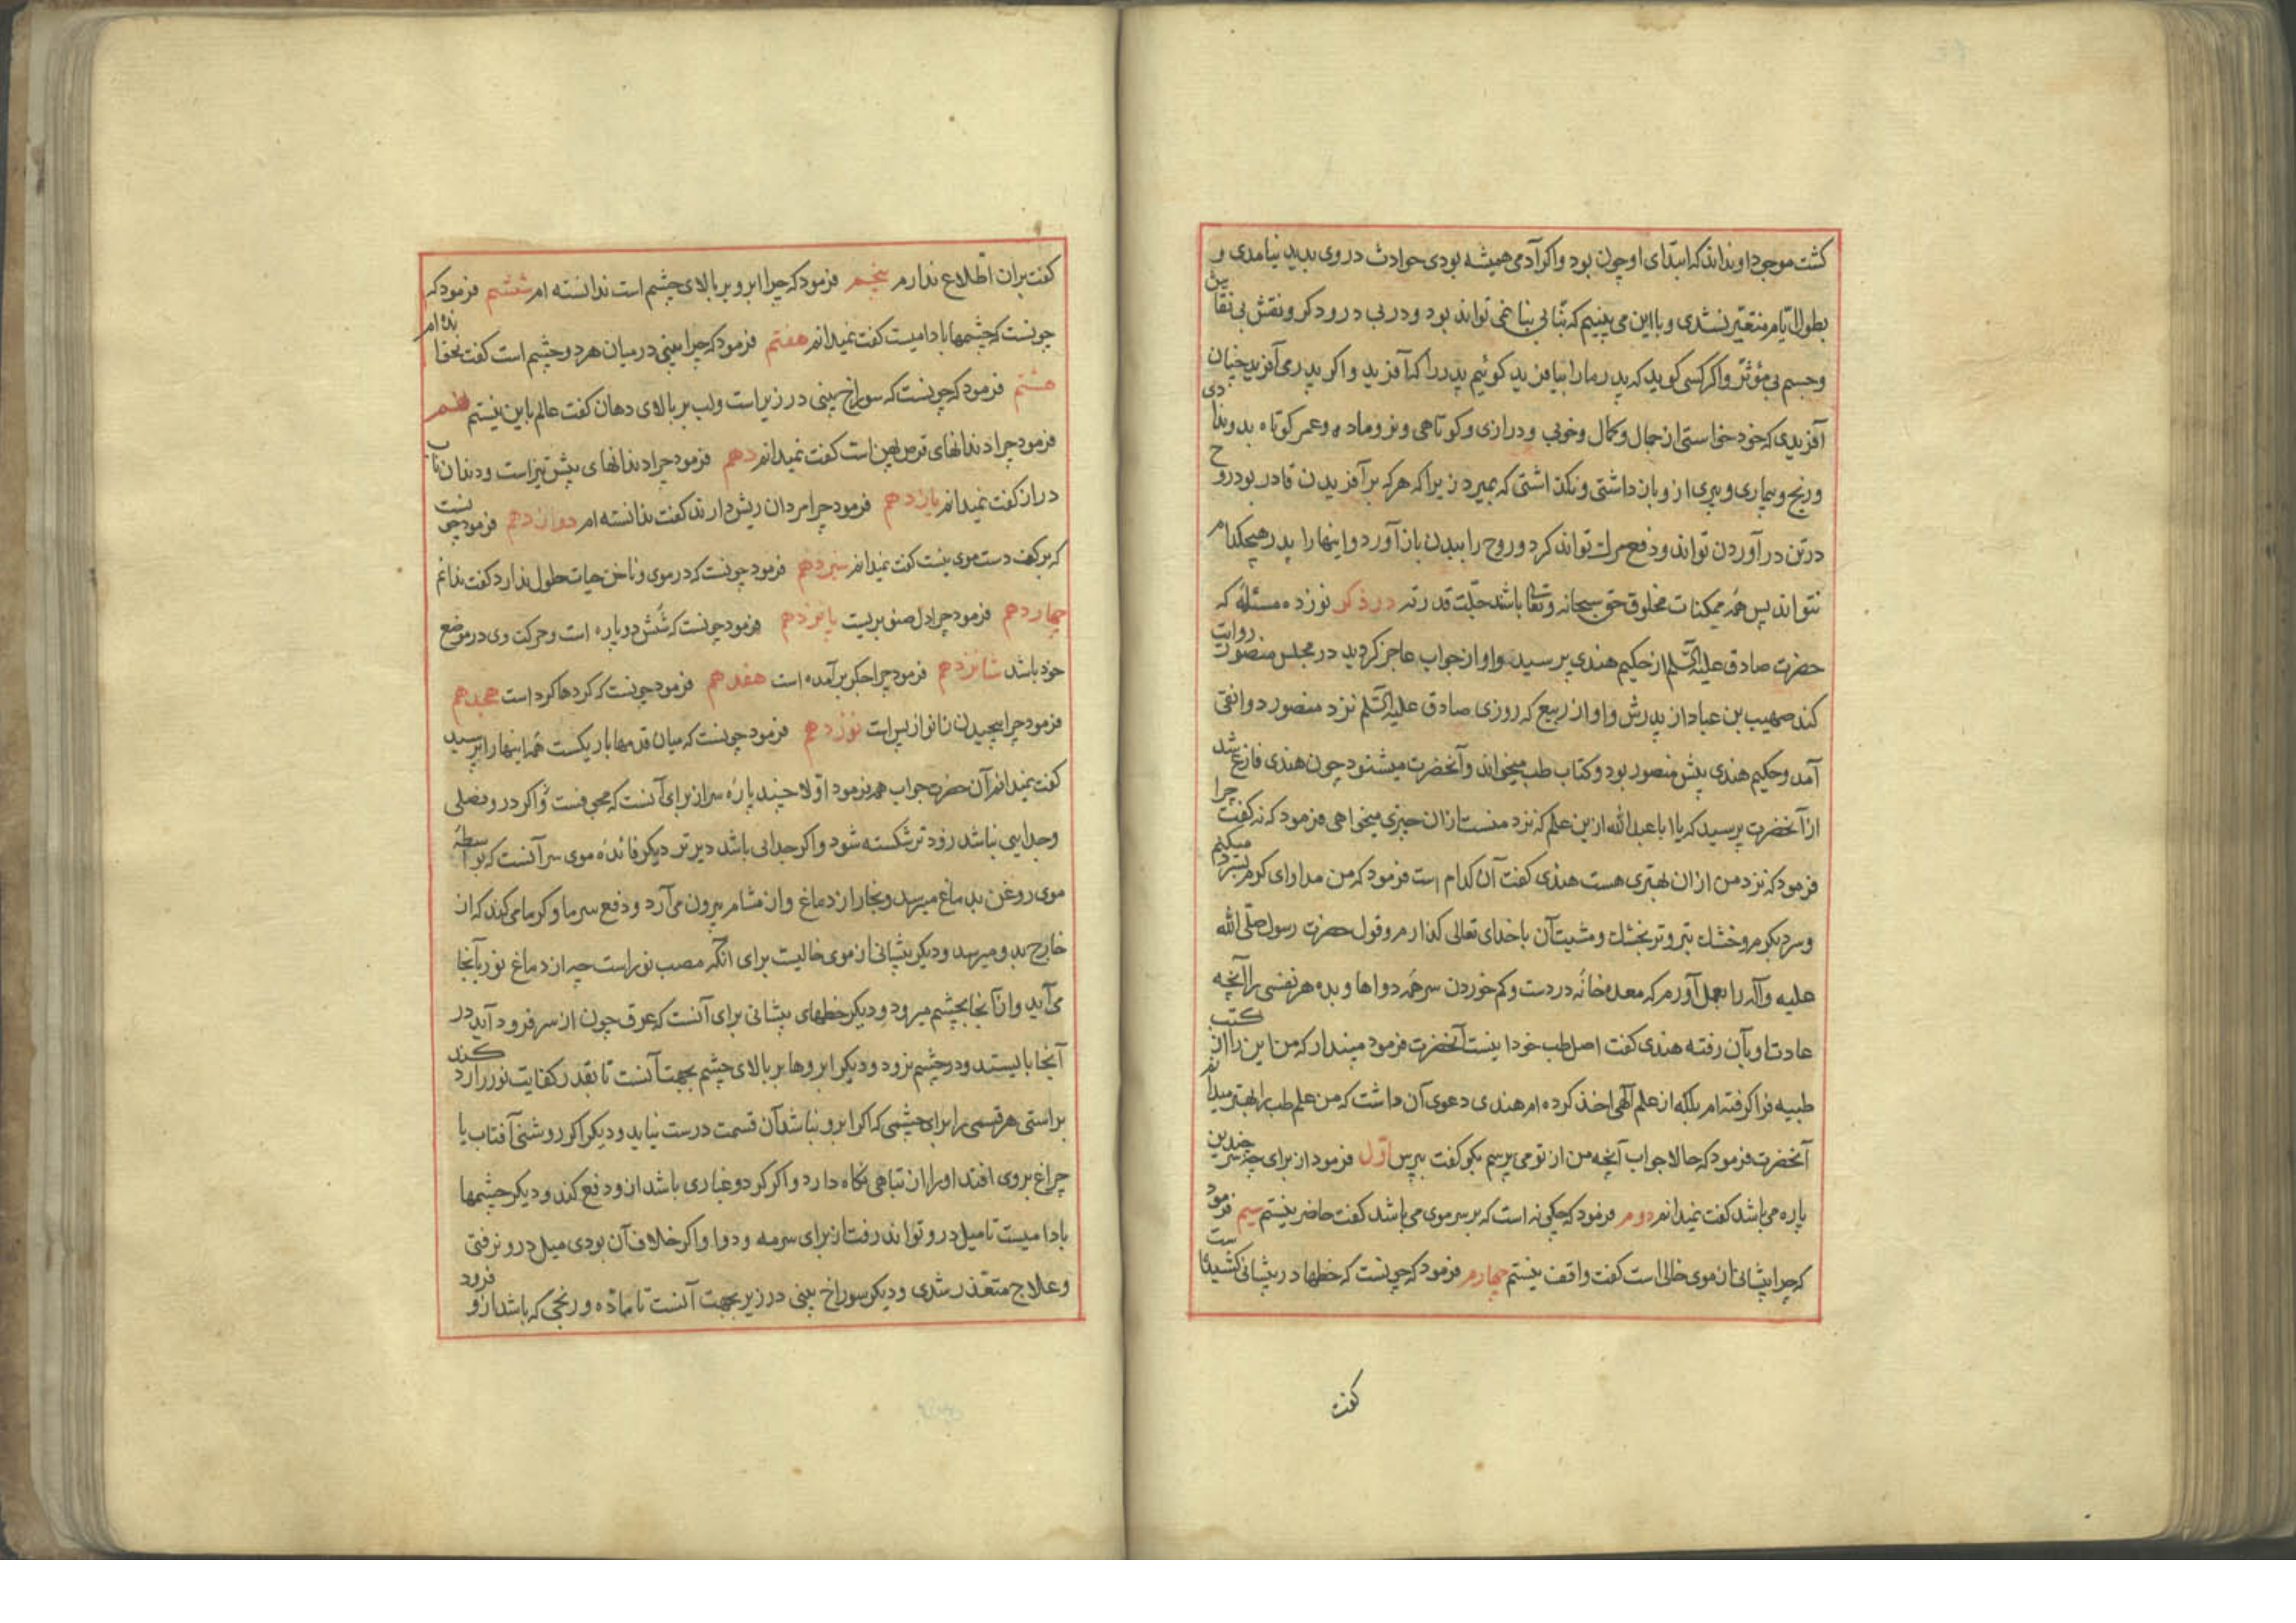 کشت موجود او نداند که ابتدای او چون بود و اکر آدمی همیشه بودی حوادث در وی پدید نیامدی و
بطول ایّام متغیّر نشدی و با این می بینیم که بنا بی بنا نمی تواند بود و در بی درودکر و نقش بی نقاش
و جسم بی مؤثّر و اکر کسی کوید که پدر ما را بیافرید کوئیم پدر را که آفرید و اکر پدر می آفرید چنان
آفریدی که خود خواستی از جمال و کمال و خوبی و درازی و کوتاهی و نر و ماده و عمر کوتاه بدو ندادی
و رنج و بیماری و پیری ازو باز داشتی و نکذاشتی که بمیرد زیرا که هر که بر آفریدن قادر بود روح
در تن در آوردن تواند و دفع مرک تواند کرد و روح را ببدن باز آورد و اینها را پدر هیچکدام
نتواند پس همه ممکنات مخلوق حق سبحانه و تعالی باشد جلّت قدرته در ذکر نوزده مسئله که
حضرت صادق علیه السّلم از حکیم هندی پرسید و او از جواب عاجز کردید در مجلس منصور روایت
کند صهیب بن عباد از پدرش و او از ربیع که روزی صادق علیه السّلم نزد منصور دوانقی
آمد و حکیم هندی پیش منصور بود و کتاب طب میخواند و آنحضرت میشنود چون هندی فارغ شد
از آنحضرت پرسید که یا ابا عبد الله ازین علم که نزد منست ازان چیزی میخواهی فرمود که نه کفت چرا
فرمود که نزد من ازان بهتری هست هندی کفت آن کدام است فرمود که من مداوای کرم بسرد میکنم
و سرد بکرم و خشک بتر و تر بخشک و مشیت آن با خدای تعالی کذارم و قول حضرت رسول صلّی الله
علیه و آله را بعمل آورم که معده خانه دردست و کم خوردن سر همه دواها و بده هر نفسی را آنچه
عادت او بآن رفته هندی کفت اصل طب خود اینست آنحضرت فرمود مپندار که من این را از کتب
طبیه فرا کرفته ام بلکه از علم آلهی اخذ کرده ام هندی دعوی آن داشت که من علم طب را بهتر میدانم
آنحضرت فرمود که حالا جواب آنچه من از تو می پرسم بکو کفت بپرس اوّل فرمود از برای چه سر چندین
پاره می باشد کفت نمیدانم دوم فرمود که چکونه است که بر سر موی می باشد کفت حاضر نیستم سیم فرمود
که چرا پیشانی از موی خالی است کفت واقف نیستم چهارم فرمود که چونست که خطها در پیشانی کشیده است
کفت
کفت بران اطّلاع ندارم پنجم فرمود که چرا ابرو بر بالای چشم است ندانسته ام ششم فرمود که
چونست که چشمها بادامیست کفت نمیدانم هفتم فرمود که چرا بینی در میان هر دو چشم است کفت نخوانده ام
هشتم فرمود که چونست که سوراخ بینی در زیر است و لب بر بالای دهان کفت عالم باین نیستم نهم
فرمود چرا دندانهای قرص پهن است کفت نمیدانم دهم فرمود چرا دندانهای پیش تیز است و دندان ناب
دراز کفت نمیدانم یازدهم فرمود چرا مردان ریش دارند کفت ندانسته ام دوازدهم فرمود چونست
که بر کف دست موی نیست کفت نمیدانم سیزدهم فرمود چونست که در موی و ناخن حیات حلول ندارد کفت ندانم
چهاردهم فرمود چرا دل صنوبریست پانزدهم فرمود چونست که شُش دو پاره است و حرکت وی در موضع
خود باشد شانزدهم فرمود چرا جکر برآمده است هفدهم فرمود چونست که کردها کرد است هجدهم
فرمود چرا پیچیدن زانو از پس است نوزدهم فرمود چونست که میان قدمها باریکست همه اینها را پرسید
کفت نمیدانم آن حضرت جواب همه فرمود اوّلا چند پاره سر از برای آنست که مجوفست و اکر درو فصلی
و جدایی نباشد زود تر شکسته شود و اکر جدایی باشد دیرتر دیکر فائدهٔ موی سر آنست که بواسطهٔ
موی روغن بدماغ میرسد و بخار از دماغ و از مشام بیرون می آرد و دفع سرما و کرما می کند که از
خارج بدو میرسد و دیکر پیشانی از موی خالیست برای آنکه مصب نور است چه از دماغ نور بآنجا
می آید و از آنجا بچشم میرود و دیکر خطهای پیشانی برای آنست که عرق چون از سر فرود آید در
آنجا بایستد و در چشم نرود و دیکر ابروها بر بالای چشم بجهت آنست تا بقدر کفایت نور را رد کند
براستی هر قسمی را برای چشمی که اکر ابرو نباشد آن قسمت درست نیاید و دیکر اکر روشنی آفتاب یا
چراغ بروی افتد او را از تباهی نکاه دارد و اکر کرد و غباری باشد ازو دفع کند و دیکر چشمها
بادامیست تا میل درو تواند رفت از برای سرمه و دوا و اکر خلاف آن بودی میل درو نرفتی
و علاج متعذر شدی و دیکر سوراخ بینی در زیر بجهت آنست تا مادّه و رنجی که باشد ازو فرود